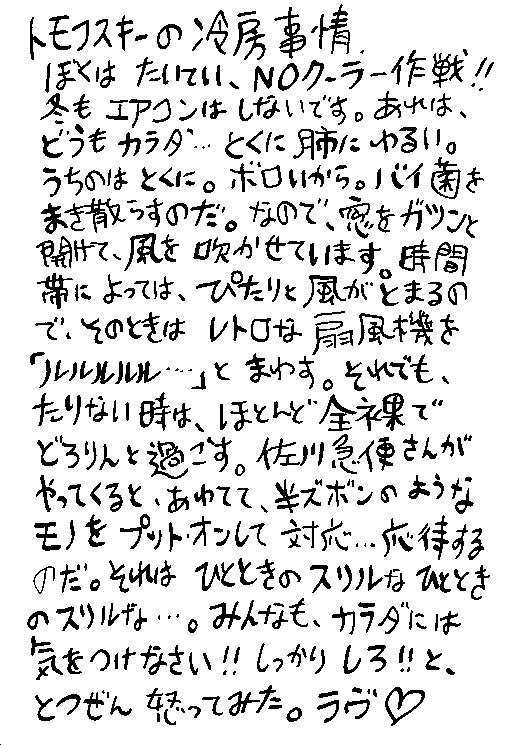 トモフスキーの冷房事情
ぼくは たいてい、NOクーラー作戦!!
冬も エアコンは しないです。あれは、
どうも カラダ… とくに 肺に わるい。
うちのは とくに。ボロいから。バイ菌を
まき散らすのだ。なので、窓を ガツンと
開けて、風を 吹かせています。時間
帯に よっては、ぴたりと 風が とまるの
で、そのときは レトロな 扇風機を
「ルルルルル…」と まわす。それでも、
たりない 時は、ほとんど 全裸で
どろりんと 過ごす。佐川急便さんが
やってくると、あわてて、半ズボンのような
モノを プット・オンして 対応… 応待する
のだ。それは ひとときの スリルな ひととき
の スリルな …。みんなも、カラダには
気をつけなさい!! しっかり しろ!! と、
とつぜん 怒ってみた。ラヴ♡